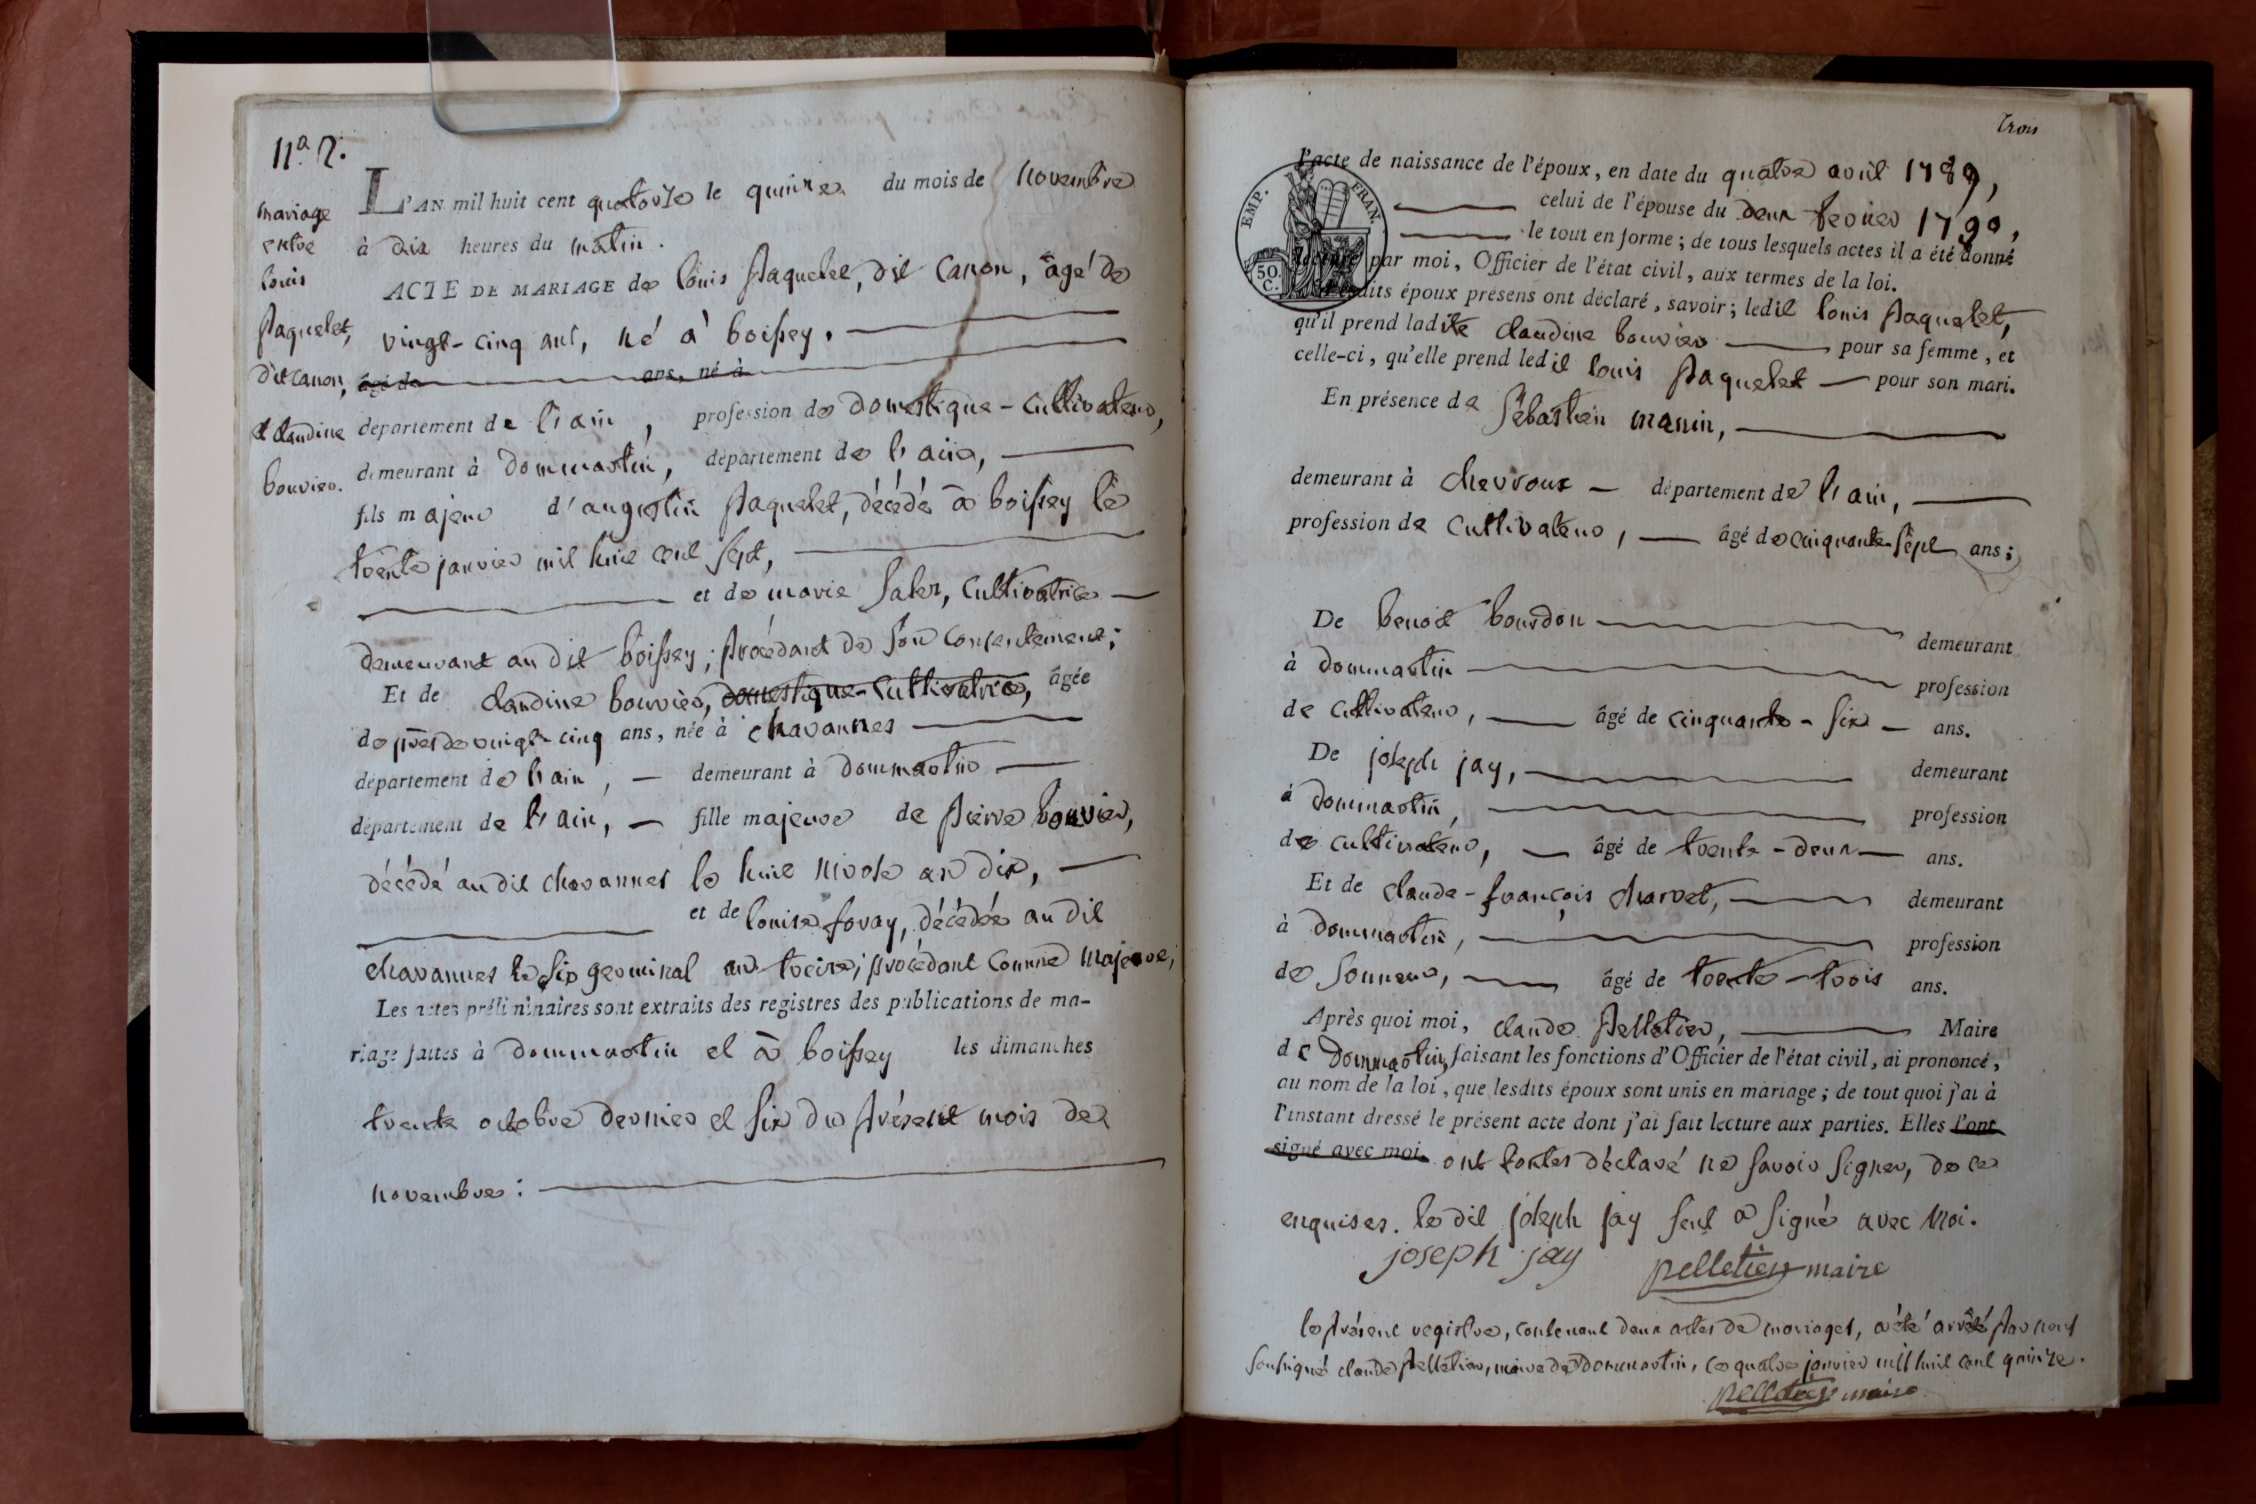 n.° 2.
mariage
entre
louis
paquelet,
dit canon,
et claudine
bouvier.
L'AN mil huit cent quatorze le quinze du mois de novembre
à dix heures du matin.
ACTE DE MARIAGE de louis paquelet, dit canon, âgé de
vingt-cinq ans, né à boissey.
âgé de ans, né à
département de l'ain, profession de domestique-cultivateur,
demeurant à dommartin, département de l'ain,
fils majeur d'augustin paquelet, décédé à boissey le
trente janvier mil huit cent sept,
et de marie cultivatrice
demeurant au dit boissey; procédant de son consentement;
Et de claudine bouvier, domestique-cultivatrice, âgée
de près de vingt-cinq ans, née à chavannes
département de l'ain, demeurant à dommartin
département de l'ain, fille majeure de pierre bouvier,
décédé au dit chavannes le huit nivose an dix,
et de louise foray, décédée au dit
chavannes le six germinal an treize; procédant comme majeure;
Les actes préliminaires sont extraits des registres des publications de ma-
riage faites à dommartin et à boissey les dimanches
trente octobre dernier et six du présent mois de
novembre:
trois
EMP. FRAN.
50.
C.
l'acte de naissance de l'époux, en date du quatre avril 1789,
celui de l'épouse du deux fevrier 1790,
le tout en forme; de tous lesquels actes il a été donné
lecture par moi, Officier de l'état civil, aux termes de la loi.
Lesdits époux présens ont déclaré, savoir; ledit louis paquelet,
qu'il prend ladite claudine bouvier pour sa femme, et
celle-ci, qu'elle prend ledit louis paquelet pour son mari.
En présence de sébastien manin,
demeurant à chevroux département de l'ain,
profession de cultivateur, âgé de cinquante-sept ans;
De benoit bourdon demeurant
à dommartin profession
de cultivateur, âgé de cinquante-six ans.
De joseph jay, demeurant
à dommartin, profession
de cultivateur, âgé de trente-deux ans.
Et de claude-françois charvet, demeurant
à dommartin, profession
de sonneur, âgé de trente-trois ans.
Après quoi moi, claude pelletier, Maire
de dommartin, faisant les fonctions d'Officier de l'état civil, ai prononcé,
au nom de la loi, que lesdits époux sont unis en mariage; de tout quoi j'ai à
l'instant dressé le présent acte dont j'ai fait lecture aux parties. Elles l'ont
signé avec moi. ont toutes déclaré ne savoir signer, de ce
enquises. le dit joseph jay seul a signé avec moi.
joseph jay pelletier maire
le présent registre, contenant deux actes de mariages, a été arrêté par nous
soussigné claude pelletier, maire de dommartin, ce quatre janvier mil huit cent quinze.
pelletier maire